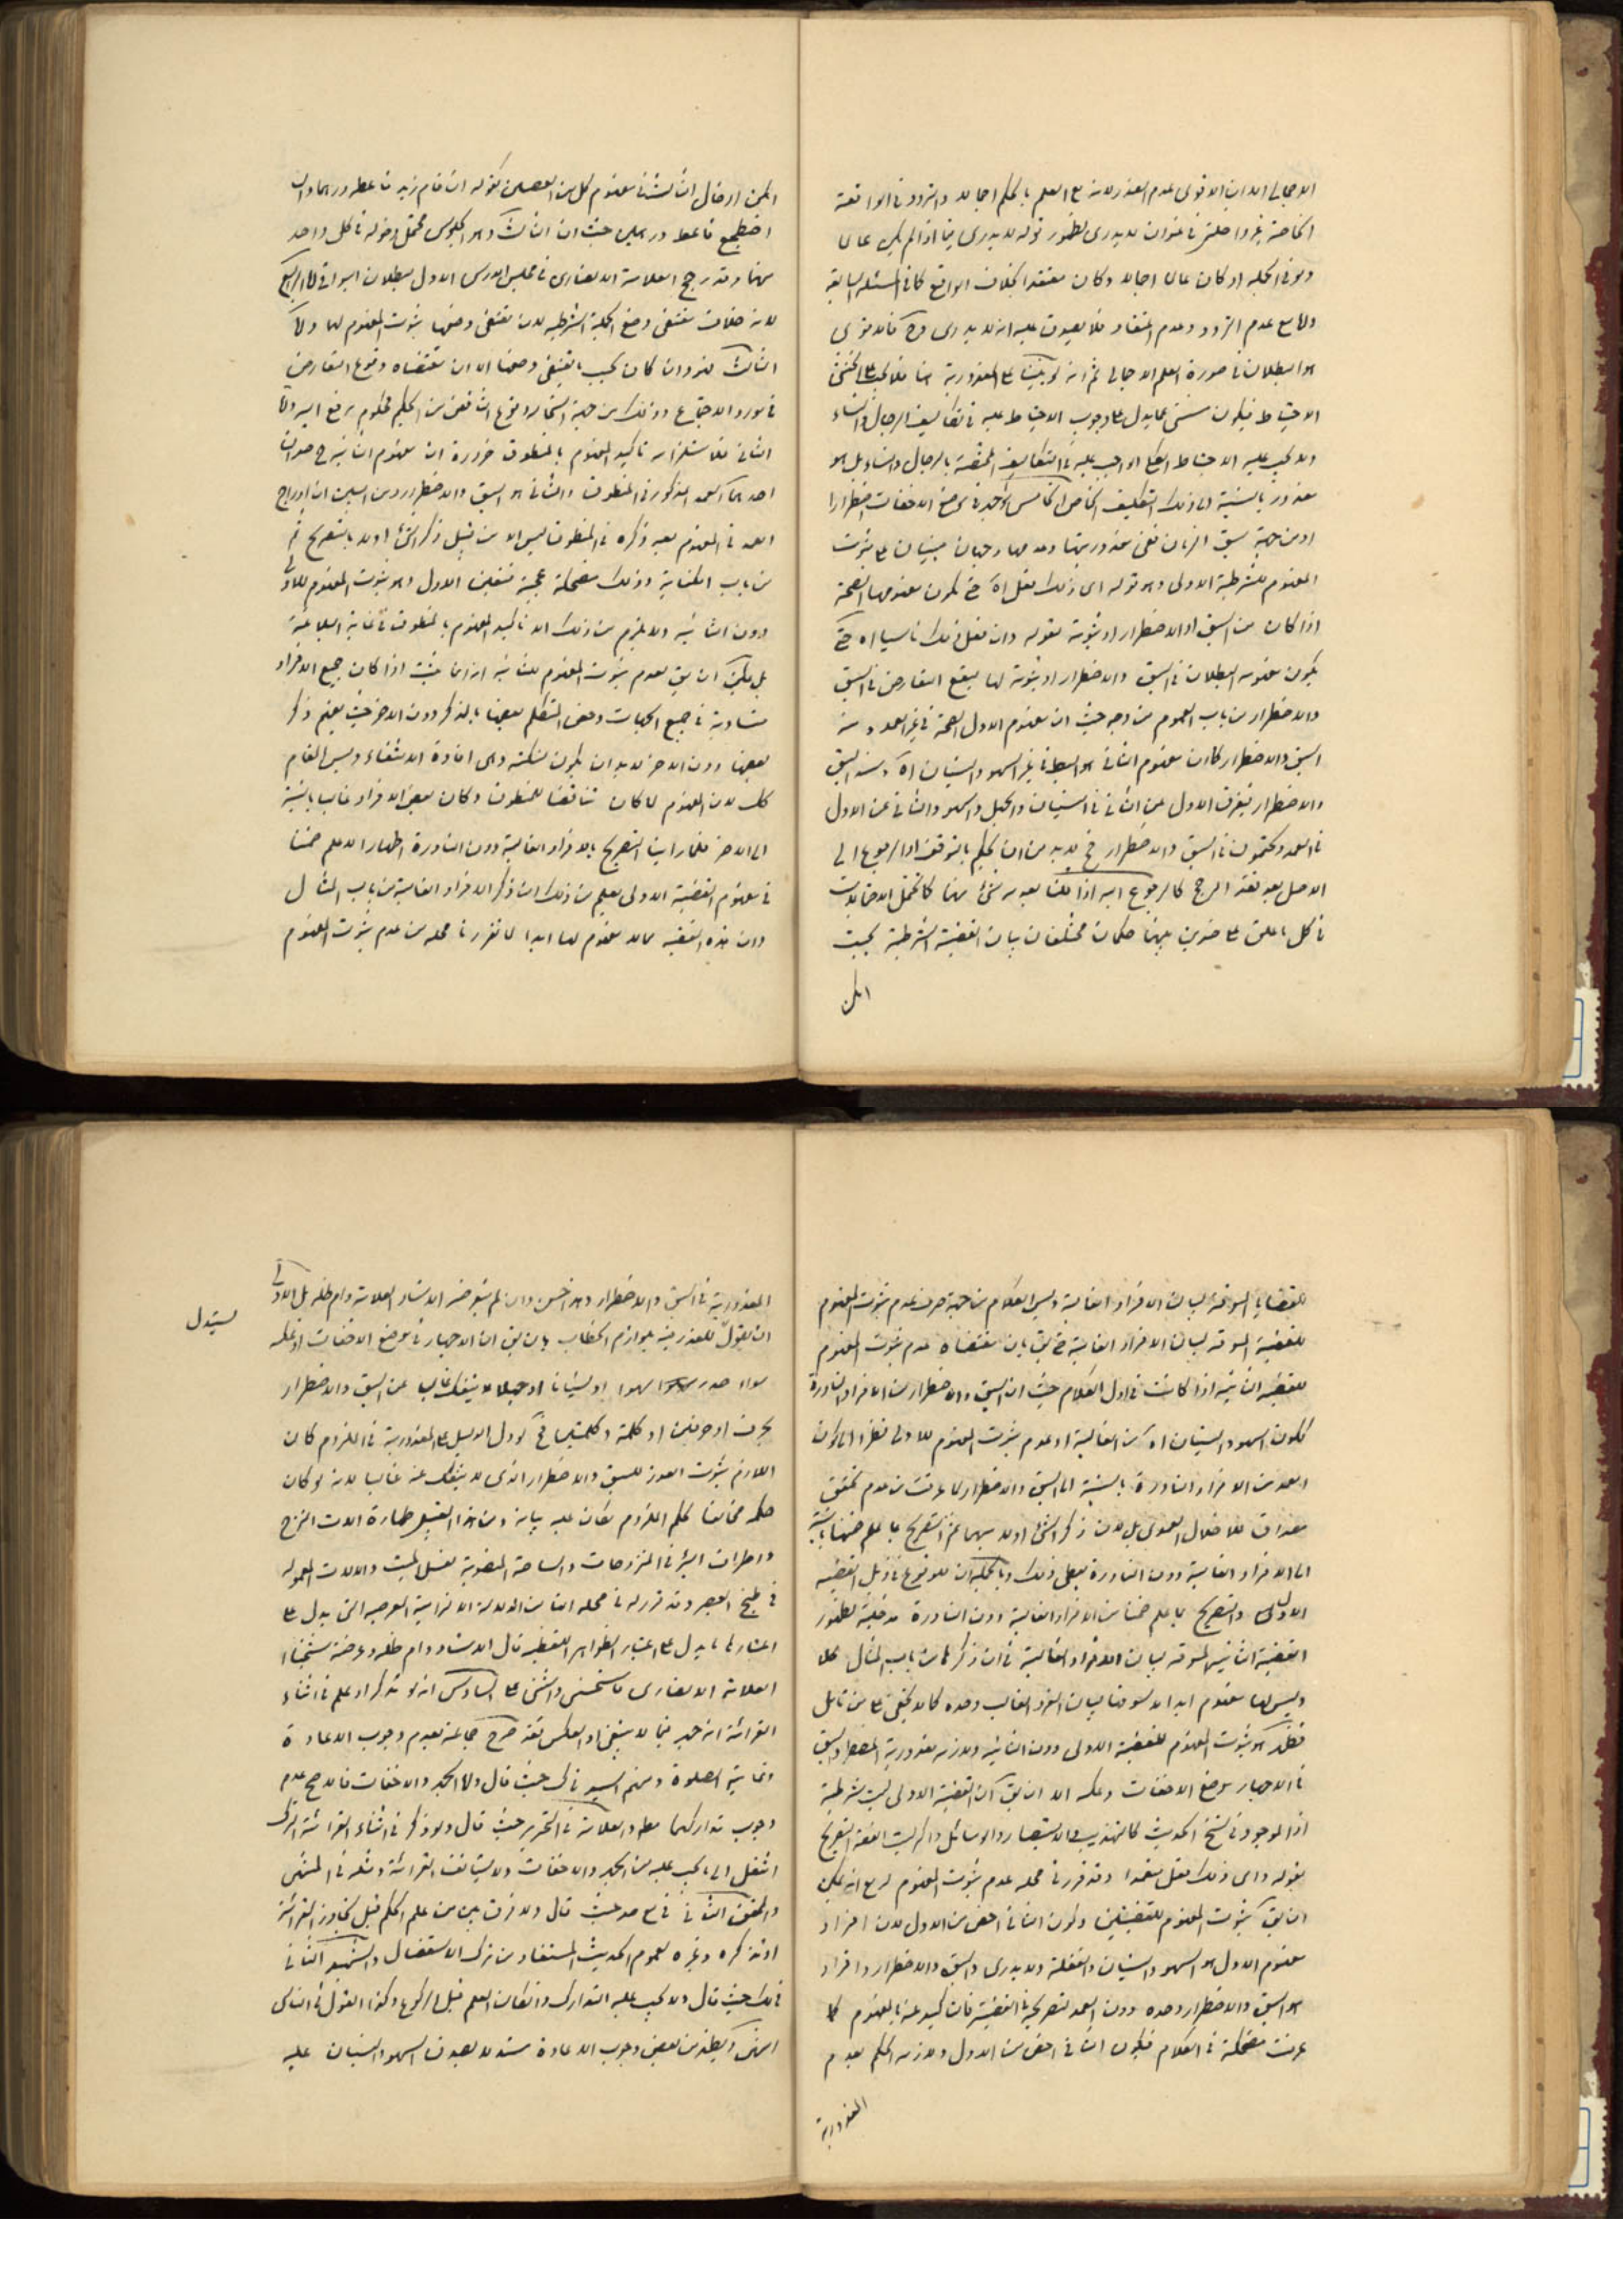 الاجمالي الا ان الاقوى عدم العذر لانه مع العلم بالحكم اجمالا والتردد في الواقعة
الخاصة غير داخلة في عنوان لا يدرى لظهور قوله لا يدرى فيما اذا لم يكن عالما
ولو في الجملة او كان عالما اجمالا وكان معتقدا بخلاف الواقع كما في المسئلة السابقة
واما مع عدم التردد وعدم اعتقاد فلا يصدق عليه انه لا يدرى وح فالاقوى
هو البطلان في صورة العلم الاجمالي ثم انه لو بنينا على المعذورية هنا فلا يجب على الخنثى
الاحتياط فيكون مستثنى مما يدل على وجوب الاحتياط عليه في تكاليف الرجال والنساء
ولا يجب عليه الاحتياط الواجب عليه في التكاليف المختصة بالرجال والنساء بل هو
معذور بالنسبة الى ذلك التكليف الخاص الخامس لو جهر في موضع الاخفات اضطرارا
او من جهة سبق اللسان ففي معذوريتها وعدمها وجهان مبنيان على ثبوت
المفهوم للشرطية الاولى وهو قوله اى ذلك فعل اه حتى يكون مفهومها الصحة
اذا كان من السبق او الاضطرار او ثبوته لقوله وان فعل ذلك ناسيا اه حتى
يكون مفهومه البطلان في السبق والاضطرار او ثبوته لهما فيقع التعارض في السبق
والاضطرار من باب العموم من وجه حيث ان مفهوم الاول الصحة في غير العمد ومنه
السبق والاضطرار كما ان مفهوم الثاني هو البطلان في غير السهو والنسيان اه ومنه السبق
والاضطرار فيفرق الاول عن الثاني في النسيان والجهل والسهو والثاني عن الاول
في العمد ويجتمعون في السبق والاضطرار فح لا بد من ان يحكم بالتوقف او الرجوع الى
الاصل بعد فقد المرجح كالرجوع اليه اذا قلنا بعدم شئ منهما كما يحتمل الاحتمالات
في كل ما علق على ضدين بينهما حكمان مختلفان بيان القضية الشرطية بحيث
امكن
امكن ادخال الثالث في مفهوم كل من القضيتين كقوله ان قام زيد فاعطه درهما وان
اضطجع فاعطه درهمين حيث ان الثالث وهو الجلوس محتمل دخوله في كل واحد
منهما وقد رجح العلامة الانصاري في مجلس الدرس الاول ببطلان البواقي اما الرابع
لانه خلاف مقتضى وضع الجملة الشرطية لان مقتضى وضعها ثبوت المفهوم لها واما
الثالث فهو وان كان بحسب مقتضى وضعها الا ان مقتضاه وقوع التعارض
في مورد الاجتماع وذلك من جهة استحالة وقوع التناقض من الحكيم محكوم برفع اليد واما
الثاني فلاستلزامه تاكيد المفهوم بالمنطوق ضرورة ان مفهوم الثانية ح صورتان
احدهما العمد المذكور في المنطوق والثاني هو السبق والاضطرار ومن البين ان ادراج
العمد في المفهوم بعد ذكره في المنطوق ليس الا من قبيل ذكر الشئ اولا بالتصريح ثم
من باب الكناية وذلك مضحكة عجيبة فتعين الاول وهو ثبوت المفهوم للاولى
دون الثانية ولا يلزم من ذلك الا تاكيد المفهوم بالمنطوق في غاية البلاغة
بل يمكن ان يق بعدم ثبوت المفهوم للثانية اذ انما يثبت اذا كان جميع الافراد
متساوية في جميع الجهات وخص المتكلم بعضها بالذكر دون الاخر حيث يعلم ذكر
بعضها دون الاخر لا بد ان يكون لنكتة وهى افادة الانتفاء وليس المقام
كك لان المفهوم لما كان مناقضا للمنطوق وكان بعض الافراد غالبا بالنسبة
الى الاخر فلما راينا التصريح بالافراد الغالبة دون النادرة اظهارا لما علم ضمنا
في مفهوم القضية الاولى يعلم من ذلك ان ذكر الافراد الغالبة من باب المثال
وان هذه القضية مما لا مفهوم لها ابدا لما تقرر في محله من عدم ثبوت المفهوم
للقضايا المسوقة لبيان الافراد الغالبة وليس الكلام من جهة صرف عدم ثبوت المفهوم
للقضية المسوقة لبيان الافراد الغالبة حتى يق بان مقتضاه عدم ثبوت المفهوم
للقضية الثانية اذا كانت في اول الكلام حيث ان السبق والاضطرار من الافراد النادرة
لكون السهو والنسيان اه من الغالبة او عدم ثبوت المفهوم للاولى نظرا الى كون
العمد من الافراد النادرة بالنسبة الى السبق والاضطرار لما عرفت من عدم تحقق
مصداق للاخلال العمدى بل لان ذكر الشئ اولا مبهما ثم التصريح بما علم ضمنها بالنسبة
الى الافراد الغالبة دون النادرة يعطى ذلك وبالجملة ان للوقوع في ذيل القضية
الاولى والتصريح بما علم ضمنا من الافراد الغالبة دون النادرة مدخلية لظهور
القضية الثانية المسوقة لبيان الافراد الغالبة في ان ذكرها من باب المثال مثلا
وليس لها مفهوم ابدا لا لسوقها لبيان الفرد الغالب وحده كما لا يخفى على من تامل
فظهر ثبوت المفهوم للقضية الاولى دون الثانية ولازمه معذورية المضطر والسبق
في الاجهار موضع الاخفات وعكسه الا ان يق ان القضية الاولى ليست شرطية
اذ الموجود في نسخ الحديث كالتهذيب والاستبصار والوسائل واكثر كتب الفقه التصريح
بقوله واى ذلك فعل متعمدا وقد قرر في محله عدم ثبوت المفهوم له مع انه يمكن
ان يق بثبوت المفهوم للقضيتين وكون الثاني اخص من الاول لان افراد
مفهوم الاول هو السهو والنسيان والغفلة ولا يدرى والسبق والاضطرار وافراد
هو السبق والاضطرار وحده دون العمد لتصريحه في القضية فتاكيده عنه بالمفهوم كما
عرفت مضحكة في الكلام فيكون الثاني اخص من الاول ولازمه الحكم بعدم
المعذورية
المعذورية في السبق والاضطرار وهو حسن وان لم يتعرضه الاستاد العلامة دام ظله بل الاولى
ان يقول للمعذورية بلوازم الخطاب بان يق ان الاجهار في موضع الاخفات او عكسه
سواء صدر سهوا او نسيانا او جهلا لا ينفك غالبا عن السبق والاضطرار
بحرف او حرفين او كلمة وكلمتين فح لو دل الدليل على المعذورية في الملزوم كان
اللازم ثبوت العذر للسبق والاضطرار الذى لا ينفك عنه غالبا لانه لو كان
حكمه مخالفا لحكم الملزوم لكان عليه بيانه ومن هذا القبيل طهارة الات النزح
واطراف البئر في المنزوحات والساحة المنصوبة لغسل الميت والالات المعمولة
في طبخ العصير وقد قرر له في محله ان من الدلالة الالتزامية العرفية التى يدل على
اعتبارها ما يدل على اعتبار الظواهر اللفظية قال الاستاد دام ظله وعرضته شيخنا
العلامة الانصاري فاستحسنه واثنى على السادس انه لو تذكر او علم في اثناء
القرائة انه جهر فيما لا ينبغي او العكس فقد صرح جماعة بعدم وجوب الاعادة
وتمامية الصلوة ومنهم السيد في ك حيث قال واما الجهر والاخفات فالاصح عدم
وجوب تداركهما مط والعلامة في التحرير حيث قال ولو ذكر في اثناء القرائة الترك
انتقل الى ما يجب عليه من الجهر والاخفات ولا يستانف القرائة ومثله في المنتهى
والمحقق الثاني في مع صد حيث قال ولا فرق بين من علم الحكم قبل تجاوز القرائة
او تذكره وغيره لعموم الحديث المستفاد من ترك الاستفصال والشهيد الثاني
في لك حيث قال ولا يجب عليه التدارك وان كان العلم قبل الركوع وكذا القول في الناسى
انتهى ويظهر من بعض وجوب الاعادة مستدلا بصدق السهو والنسيان عليه
يستدل